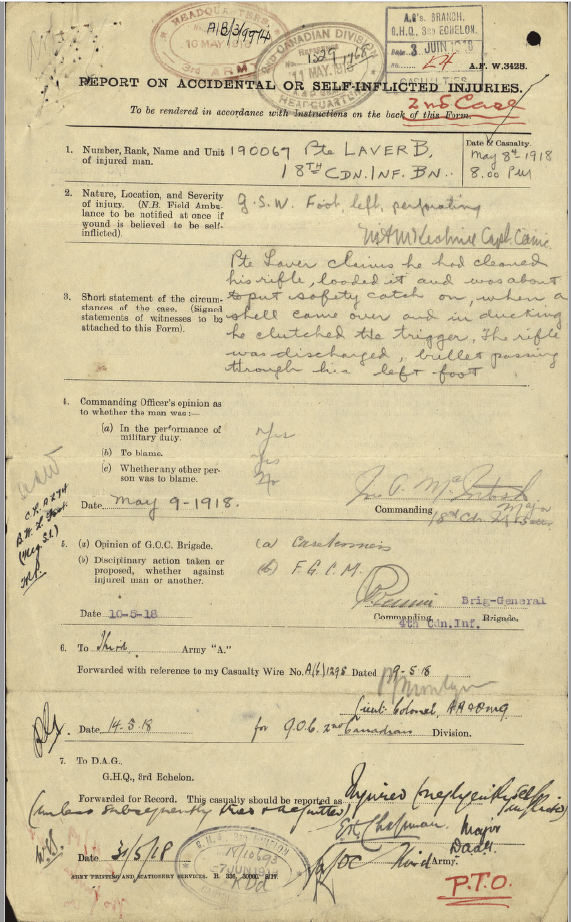 HEADQUARTERS
A/B/3/9974
16 MAY 1918
3rd ARMY
2ND CANADIAN DIVISION
1527/1768
11 MAY. 1918
HEADQUARTERS
A.G's. BRANCH,
G.H.Q. 3rd ECHELON.
Date 3 JUN 1919
No.
CASUALTIES
A.F. W.3428.
REPORT ON ACCIDENTAL OR SELF-INFLICTED INJURIES.
2nd Case
To be rendered in accordance with Instructions on the back of this Form.
1. Number, Rank, Name and Unit of injured man.
190067 Pte LAVER B.
18TH CDN. INF. BN.
Date & Casualty.
May 8th 1918
8.00 PM
2. Nature, Location, and Severity
of injury. (N.B. Field Ambu-
lance to be notified at once if
wound is believed to be self-
inflicted).
G.S.W. Foot, left, perforating
Capt. Camc
3. Short statement of the circum-
stances of the case. (Signed
statements of witnesses to be
attached to this Form).
Pte Laver claims he had cleaned
his rifle, loaded it and was about
to put safety catch on, when a
shell came over and in ducking
he clutched the trigger. The rifle
was discharged, bullet passing
through his left foot
4. Commanding Officer's opinion as
to whether the man was:—
(a) In the performance of
military duty.
Yes
(b) To blame.
Yes
(c) Whether any other per-
son was to blame.
No
Date May 9-1918.
Major
Commanding 18th Cdn.
5. (a) Opinion of G.O.C. Brigade.
(a) Carelessness
(b) Disciplinary action taken or
proposed, whether against
injured man or another.
(b) F.G.C.M.
Brig-General
Date 10-5-18
Commanding 4th Cdn.Inf. Brigade.
6. To Third Army "A."
Forwarded with reference to my Casualty Wire No. A(b)1295 Dated 9-5-18
Lieut. Colonel, AA&QMG
Date 14-5-18
for G.O.C. 2nd Canadian Division.
7. To D.A.G.,
G.H.Q., 3rd Echelon.
Forwarded for Record. This casualty should be reported as Injured (negligently self inflicted)
(unless subsequently tried & acquitted)
Major
DAAG
Date 31/5/18
GOC Third Army.
7 JUN 1918
ARMY PRINTING AND STATIONERY SERVICES.
P.T.O.